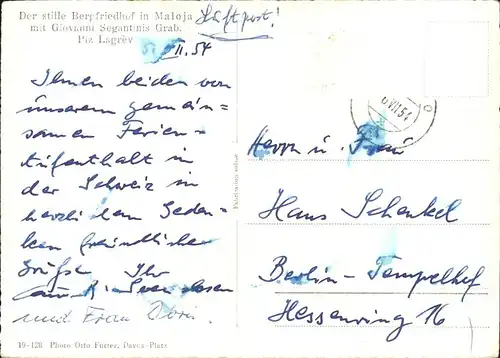 Der stille Bergfriedhof in Maloja
mit Giovanni Segantinis Grab.
Piz Lagrèv
Luftpost!
VII.54
Ihnen beiden von
unserem gemein=
samen Ferien=
Aufenthalt in
der Schweiz in
herzlichem Geden=
ken freundliche
Grüße Ihr
und Frau Doris.
19-128 Photo Otto Furter, Davos-Platz
VII.54
Herrn u. Frau
Hans Schenkel
Berlin-Tempelhof
Hessenring 16